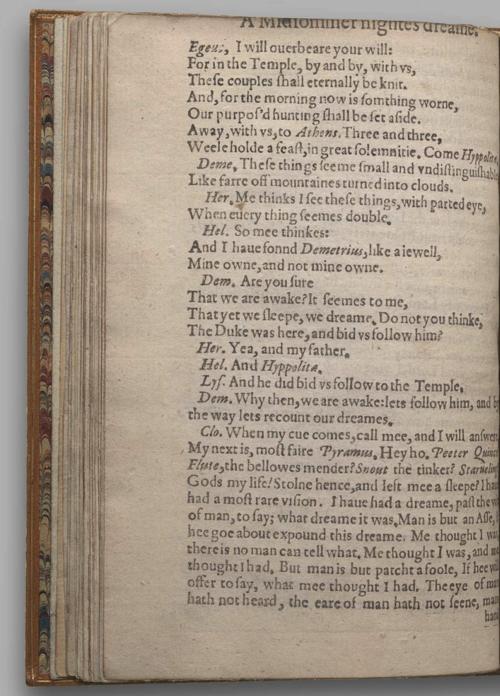 A Midsommer nightes dreame.
Egeus, I will ouerbeare your will:
For in the Temple, by and by, with vs,
These couples shall eternally be knit.
And, for the morning now is somthing worne,
Our purpos'd hunting shall be set aside.
Away, with vs, to Athens. Three and three,
Weele holde a feast, in great solemnitie. Come Hyppolita.
Deme. These things seeme small and vndistinguishable
Like farre off mountaines turned into clouds.
Her. Me thinks I see these things, with parted eye,
When euery thing seemes double.
Hel. So mee thinkes:
And I haue fonnd Demetrius, like a iewell,
Mine owne, and not mine owne.
Dem. Are you sure
That we are awake? It seemes to me,
That yet we sleepe, we dreame. Do not you thinke,
The Duke was here, and bid vs follow him?
Her. Yea, and my father.
Hel. And Hyppolita.
Lys. And he did bid vs follow to the Temple.
Dem. Why then, we are awake: lets follow him, and by
the way lets recount our dreames.
Clo. When my cue comes, call mee, and I will answer.
My next is, most faire Pyramus. Hey ho. Peeter Quince
Flute, the bellowes mender? Snout the tinker? Starueling
Gods my life! Stolne hence, and left mee a sleepe? I haue
had a most rare vision. I haue had a dreame, past the wit
of man, to say; what dreame it was. Man is but an Asse, if
hee goe about expound this dreame. Me thought I was
there is no man can tell what. Me thought I was, and me
thought I had. But man is but patcht a foole, If hee will
offer to say, what mee thought I had. The eye of man
hath not heard, the eare of man hath not seene, mans
hand